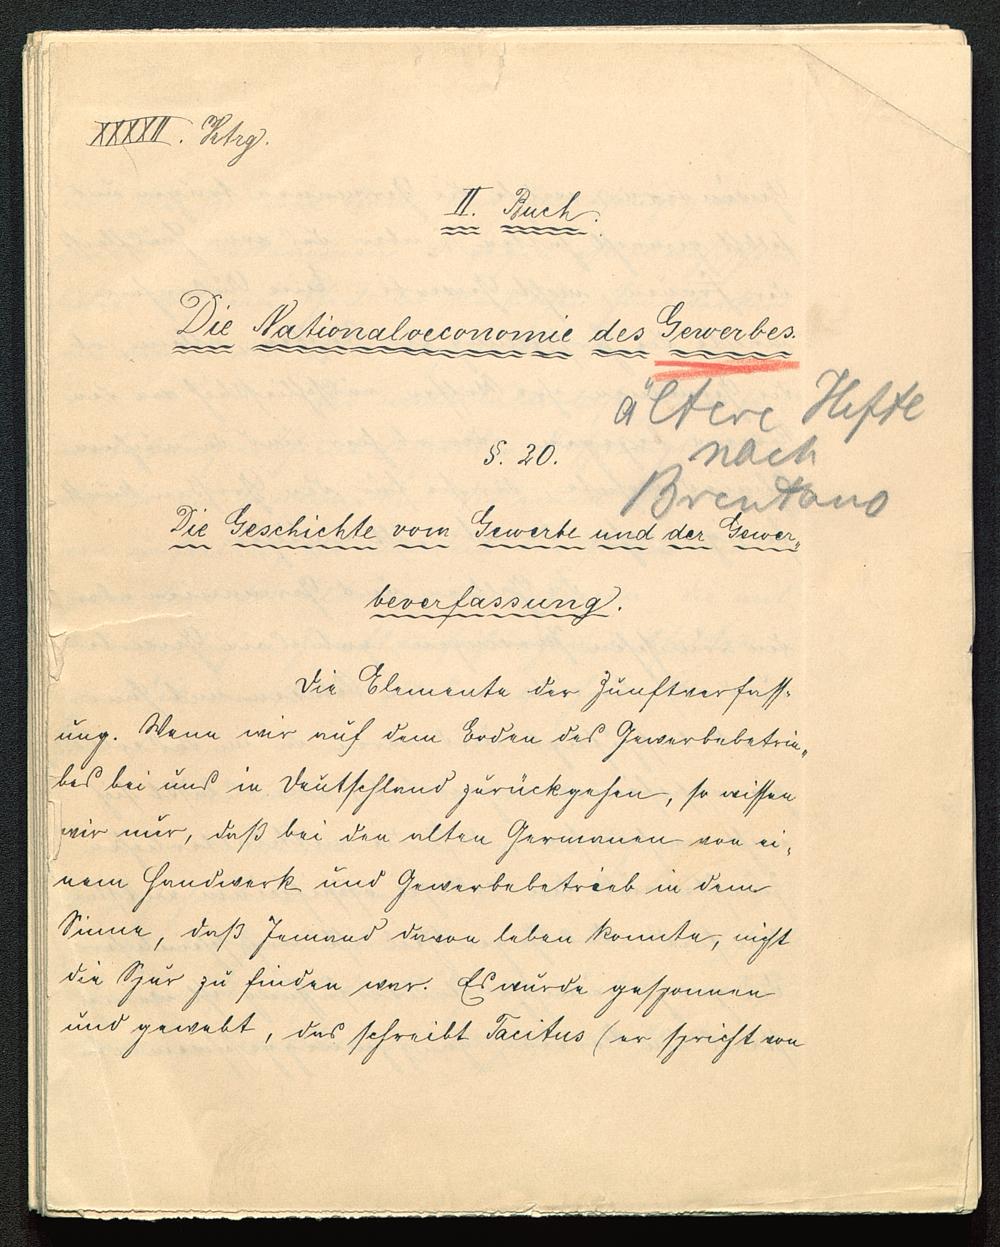 XXXXII. Ztrg.
II. Buch.
Die Nationaloeconomie des Gewerbes.
ältere Hefte
nach
Brentano
§. 20.
Die Geschichte vom Gewerbe und der Gewer„
beverfassung.
Die Elemente der Zunftverfass-
ung. Wenn wir auf dem Boden des Gewerbebetrie„
bes bei uns in Deutschland zurückgehen, so wissen
wir nur, daß bei den alten Germanen von ei„
nem Handwerk und Gewerbebetrieb in dem
Sinne, daß Jemand davon leben konnte, nicht
die Spur zu finden war. Es wurde gesponnen
und gewebt, das schreibt Tacitus (er spricht von